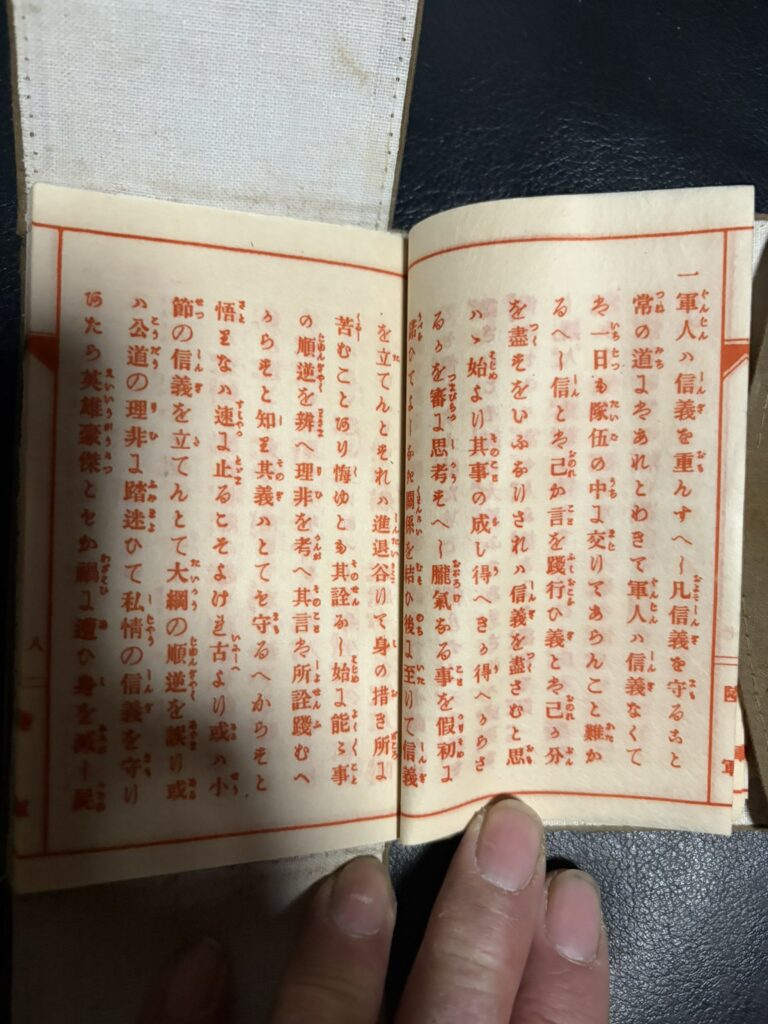 一軍人は信義を重んすへし凡信義を守ること
常の道にはあれとわきて軍人は信義なくて
は一日も隊伍の中に交りてあらんこと難か
るへし信とは己か言を踐行ひ義とは己か分
を盡すをいふなりされは信義を盡さむと思
はゝ始より其事の成し得へきか得へからさ
るかを審に思考すへし朧氣なる事を假初に
諾ひてよしなき關係を結ひ後に至りて信義
を立てんとすれは進退谷りて身の措き所に
苦むことあり悔ゆとも其詮なし始に能々事
の順逆を辨へ理非を考へ其言は所詮踐むへ
からすと知り其義はとても守るへからすと
悟りなは速に止るこそよけれ古より或は小
節の信義を立てんとて大綱の順逆を誤り或
は公道の理非に踏迷ひて私情の信義を守り
あたら英雄豪傑ともか禍に遭ひ身を滅し屍
陸軍
八